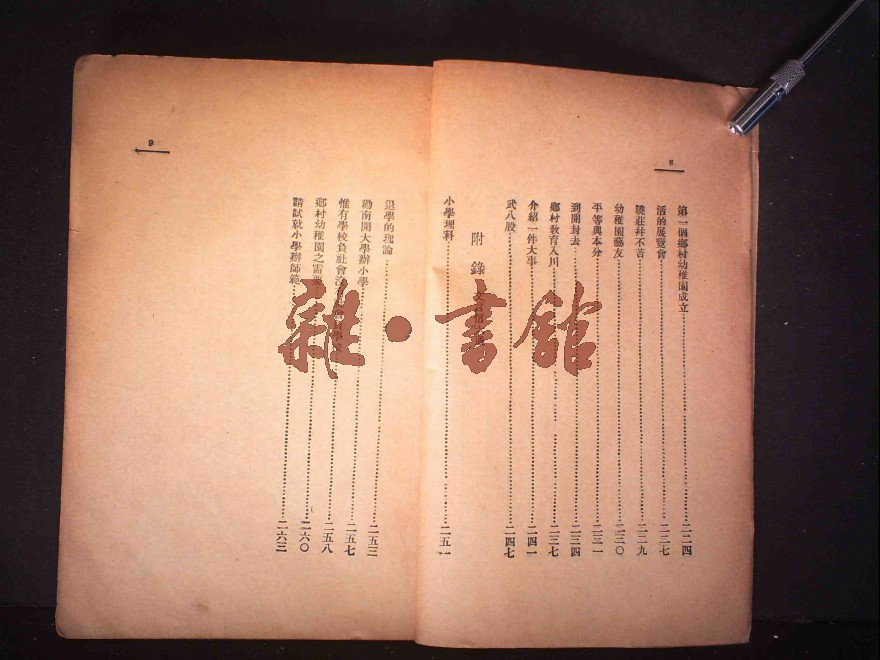 8
第一個鄉村幼稚園成立……二二四
活的展覽會……二二七
曉莊幷不苦……二二九
幼稚園藝友……二三〇
平等與本分……二三一
到開封去……二三四
鄉村教育入川……二三七
介紹一件大事……二四一
武八股……二四七
附錄
小學理科……二五一
9
退學的理論……二五三
勸南開大學辦小學……二五七
惟有學校負社會
……二五八
鄉村幼稚園之需要……二六〇
請試就小學辦師範……二六三
雜·書館